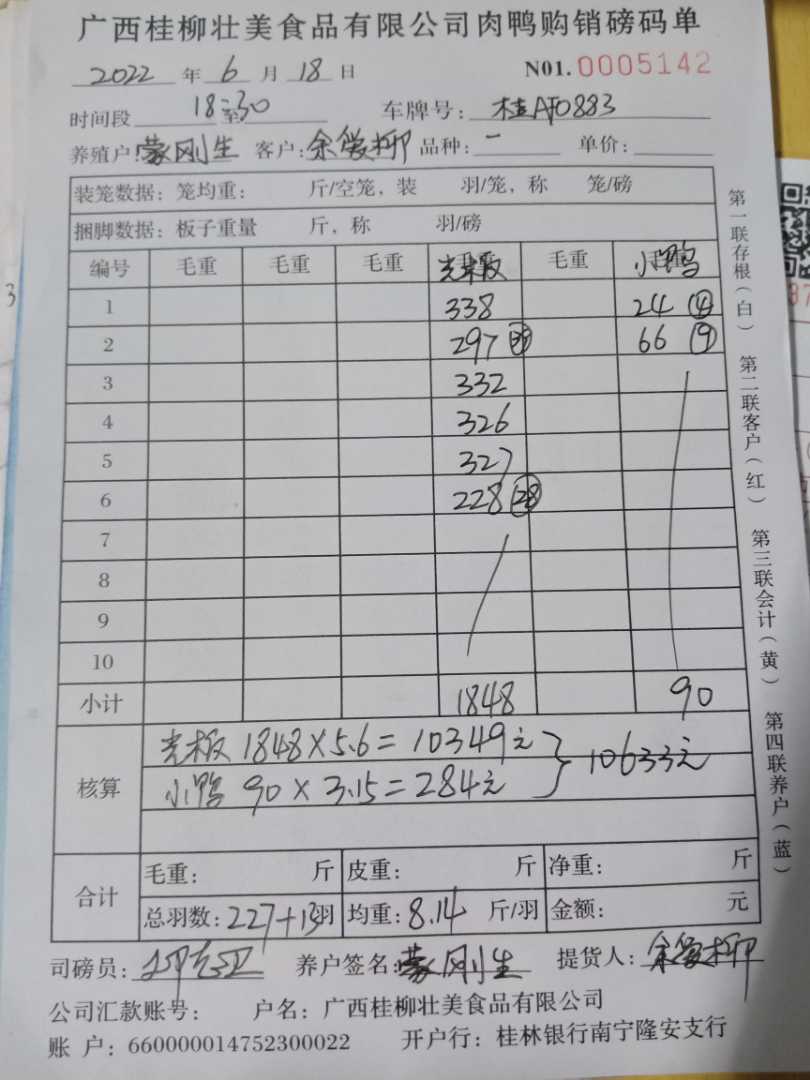 广西桂柳壮美食品有限公司肉鸭购销磅码单
2022 年 6 月 18 日 N01. 0005142
时间段 18:30 至 车牌号: 桂AF0883
养殖户: 蒙刚生 客户: 余爱柳 品种: 一 单价:
装笼数据: 笼均重: 斤/空笼, 装 羽/笼, 称 笼/磅
捆脚数据: 板子重量 斤, 称 羽/磅
编号 毛重 毛重 毛重 光板 毛重 小鸭
1 338 24 ④
2 297 66 ⑨
3 332
4 326
5 327
6 228 ㉘
7
8
9
10
小计 1848 90
核算 光板 1848×5.6=10349元 } 10633元
小鸭 90×3.15=284元
合计 毛重: 斤 皮重: 斤 净重: 斤
总羽数: 227+13羽 均重: 8.14 斤/羽 金额: 元
司磅员: 养户签名: 蒙刚生 提货人: 余爱柳
公司汇款账号: 户名: 广西桂柳壮美食品有限公司
账 户: 660000014752300022 开户行: 桂林银行南宁隆安支行
第一联存根(白) 第二联客户(红) 第三联会计(黄) 第四联养户(蓝)
3